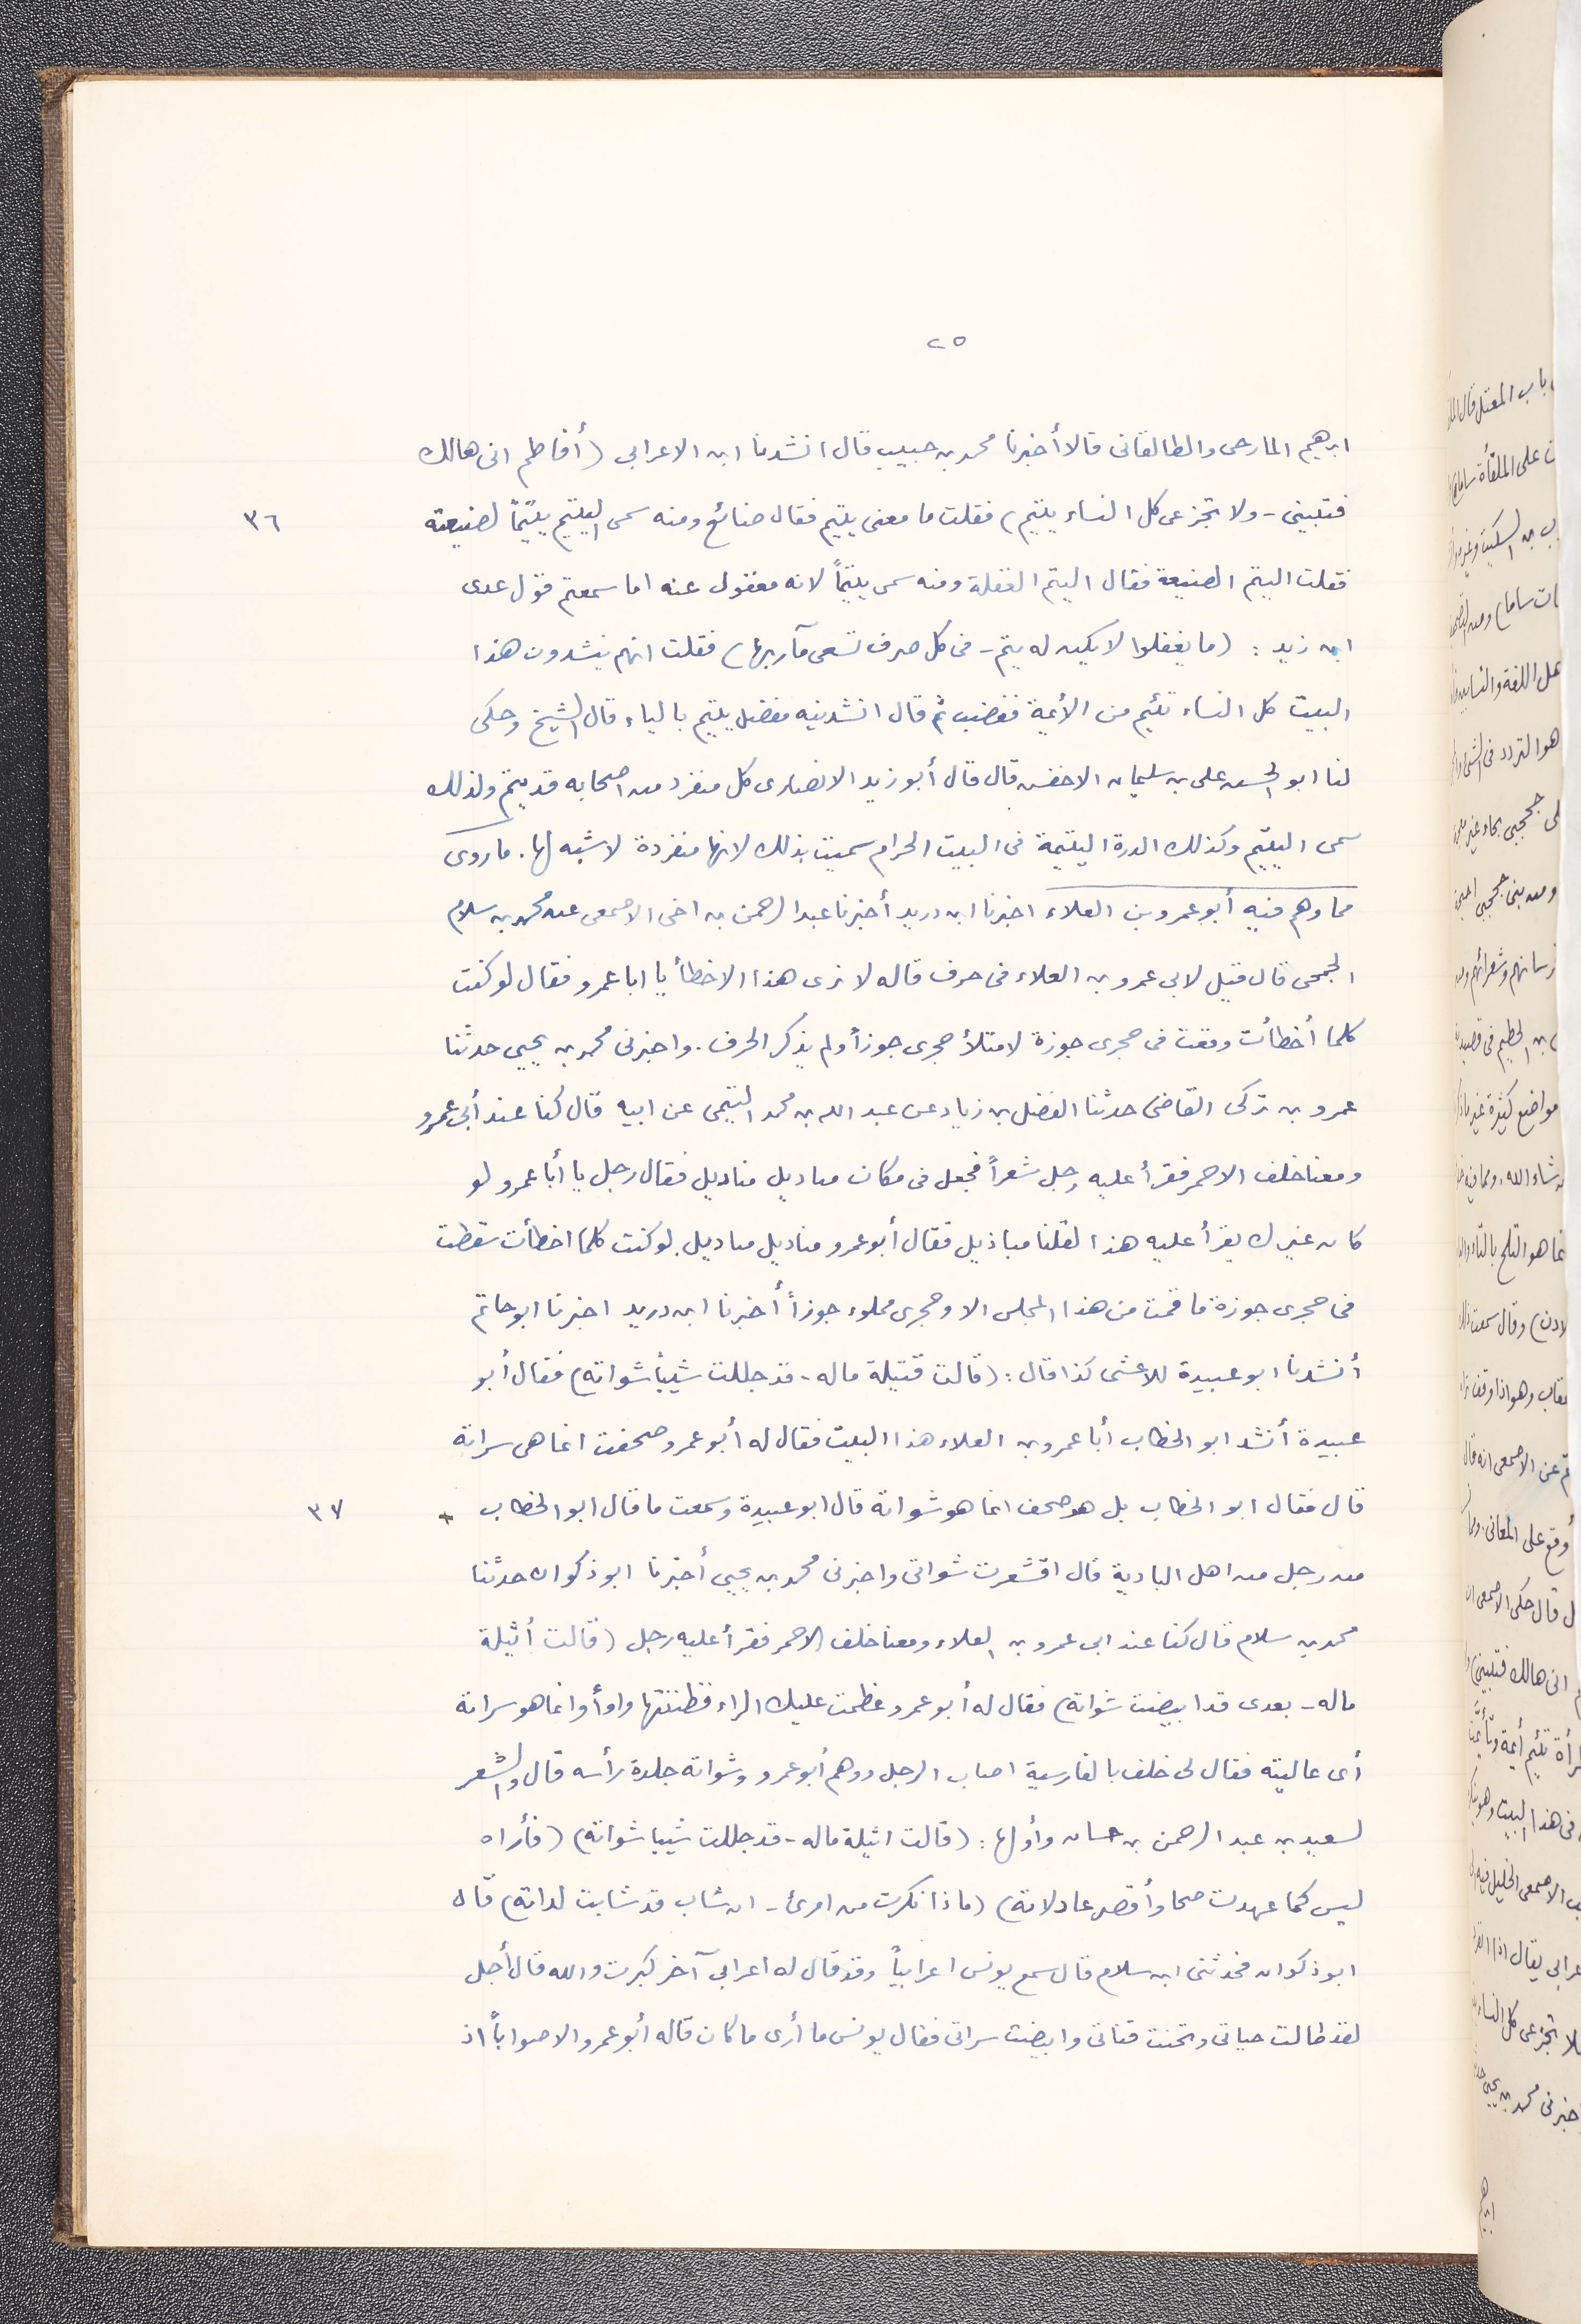 ٢٥
ابرهيم المارحى والطالقانى قالا أخبرنا محمد بن حبيب قال انشدنا ابن الاعرابى (أفاطم انى هالك
فتبينى - ولا تجزعى كل النساء يتيم) فقلت ما معنى يتيم فقال ضائع ومنه سمى اليتيم يتيماً لضيعته
٣٦
فقلت اليتم الضيعة فقال اليتم الغفلة ومنه سمى يتيماً لانه مغفول عنه اما سمعتم قول عدى
ابن زيد : (ما يغفلوا لا يكن له يتم - فى كل صرف تسعى مآربها) فقلت انهم ينشدون هذا
البيت كل النساء تئيم من الأيمة فغضب ثم قال انشدنيه مفضل يتيم بالياء قال الشيخ وحكى
لنا ابو الحسن على بن سليمان الاخفش قال قال أبو زيد الانصارى كل منفرد من اصحابه قد يتم ولذلك
سمى اليتيم وكذلك الدرة اليتيمة فى البيت الحرام سميت بذلك لانها منفردة لا شبه لها. ما روى
مما وهم فيه أبو عمرو بن العلاء اخبرنا ابن دريد أخبرنا عبد الرحمن بن اخى الاصمعى عن محمد بن سلام
الجمحى قال قيل لابى عمرو بن العلاء فى حرف قاله لا نرى هذا الا خطأ يا ابا عمرو فقال لو كنت
كلما أخطأت وقعت فى حجرى جوزة لامتلأ حجرى جوزاً ولم يذكر الحرف. واخبرنى محمد بن يحيى حدثنا
عمرو بن تركى القاضى حدثنا الفضل بن زياد عن عبد الله بن محمد التيمى عن ابيه قال كنا عند أبى عمرو
ومعنا خلف الاحمر فقرأ عليه رجل شعراً فجعل فى مكان مباديل مناديل فقال رجل يا أبا عمرو لو
كان غيرك يقرأ عليه هذا لقلنا مباذيل فقال أبو عمرو مناديل مباديل لو كنت كلما اخطأت سقطت
فى حجرى جوزة ما قمت من هذا المجلس الا وحجرى مملوء جوزاً أخبرنا ابن دريد اخبرنا ابو حاتم
أنشدنا ابو عبيدة للاعشى كذا قال : (قالت قتيلة ماله - قد جللت شيباً شواته) فقال أبو
عبيدة أنشد ابو الخطاب أبا عمرو بن العلاء هذا البيت فقال له أبو عمرو صحفت انما هى سراته
قال فقال ابو الخطاب بل هو صحف انما هو شواته قال ابو عبيدة وسمعت ما قال ابو الخطاب
٣٧
من رجل من اهل البادية قال اقشعرت شواتى واخبرنى محمد بن يحيى أخبرنا ابو ذكوان حدثنا
محمد بن سلام قال كنا عند ابى عمرو بن العلاء ومعنا خلف الاحمر فقرأ عليه رجل (قالت أثيلة
ماله - بعدى قد ابيضت شواته) فقال له أبو عمرو عظمت عليك الراء فظننتها واواً وانما هو سراته
أى عاليته فقال لى خلف بالفارسية اصاب الرجل ووهم أبو عمرو وشواته جلدة رأسه قال والشعر
لسعيد بن عبد الرحمن بن حسان وأولها : (قالت اثيلة ماله - قد جللت شيبا شواته) (فأراه
ليس كما عهدت صحا وأقصر عاذلاته) (ماذا نكرت من امرئ - ان شاب قد شابت لداته) قال
ابو ذكوان فحدثنى ابن سلام قال سمع يونس اعرابياً وقد قال له اعرابى آخر كبرت والله قال أجل
لقد طالت حياتى وتحنت قناتى وابيضت سراتى فقال يونس ما أرى ما كان قاله أبو عمرو الا صواباً اذ